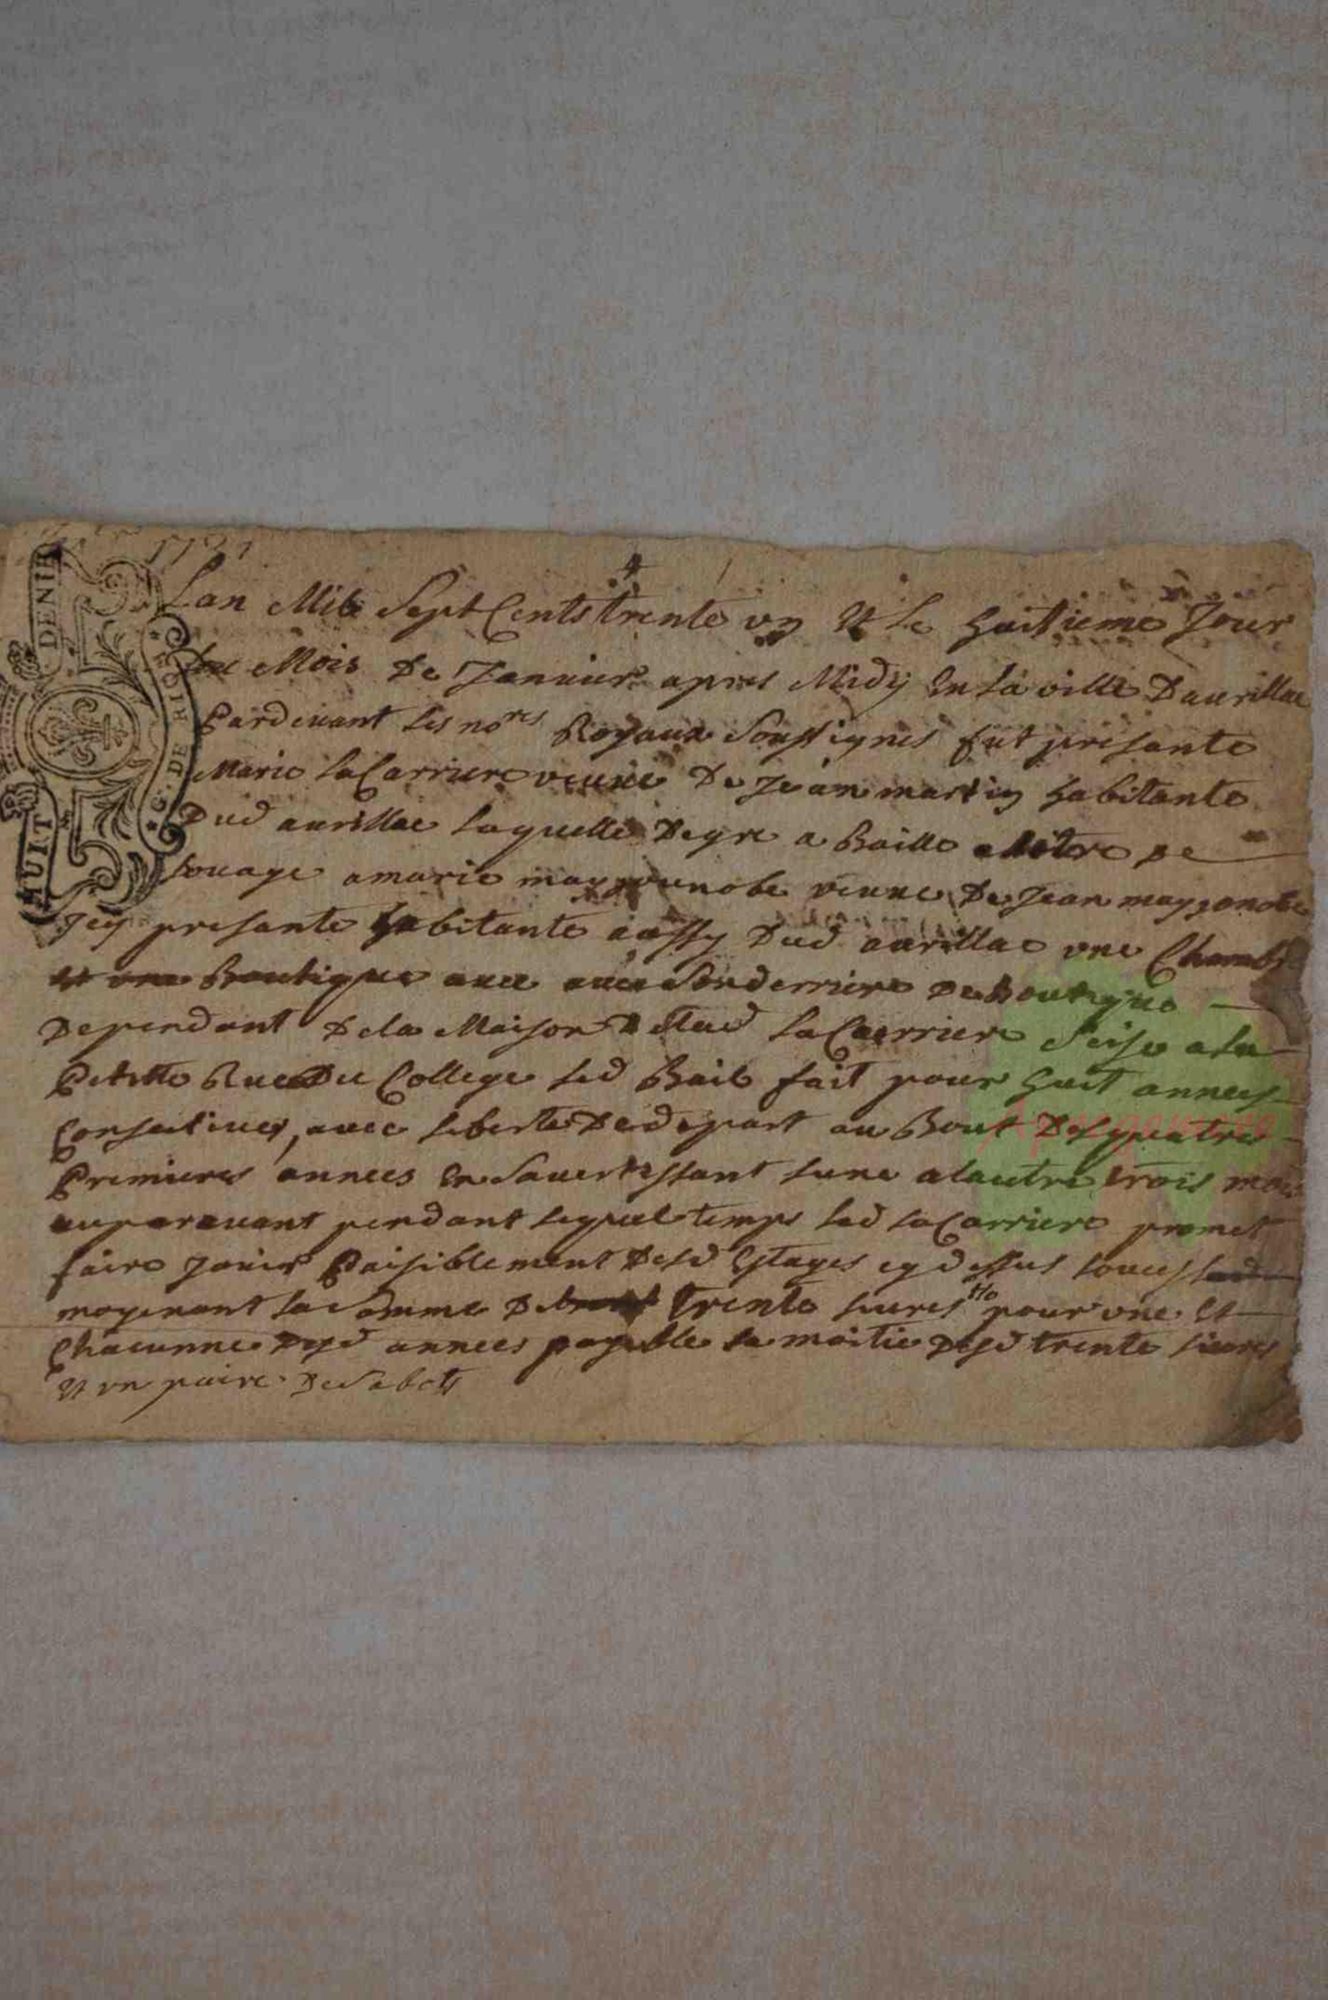 HUIT DENIE
G. DE RIOM
Lan Mil Sept Cents trente un Et Le huitieme Jour
Du Mois De Januier apres Midy En La ville Daurillac
Pardeuant Les no.res Royaux Soussignes fut presante
Marie LaCarriere veuue De Jean martin habitante
Dud aurillac Laquelle De gre a Baille a titre De
Louage a marie mayzonobe veuue De Jean mayzonobe
Jcy presante habitante aussy Dud aurillac une Chambre
Et une Boutique auec Son Derriere De Boutique
Dependant De la Maison De lad LaCarriere Seise a la
Petitte Rue Du College Led Bail fait pour huit annees
Consecutiues, auec Liberte De depart au Bout Des quatres
Premieres annees En Sauertissant Lune a lautre trois mois
auparauant pendant Lequel temps Lad LaCarriere promet
faire Jouir Paisiblement Desd Estages cy dessus Louees
moyenant La Somme De trente Liures tto pour une Et
Chacunne Desd annees payable La moitie Desd trente Liures
Et un paire De Sabots